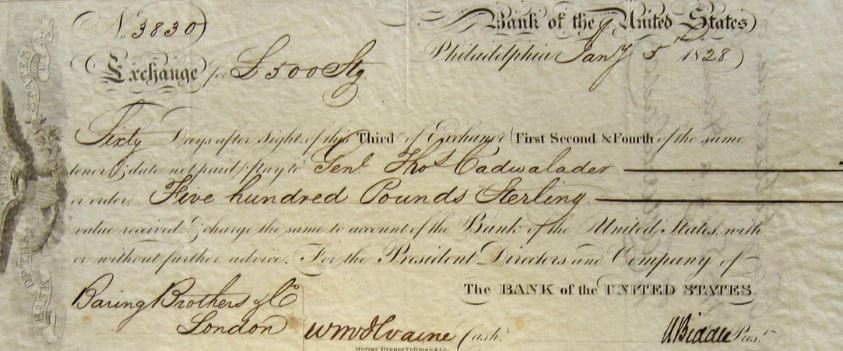 No. 3830
Bank of the United States
Philadelphia Jany 5th 1828
Exchange for £500 Stg.
Sixty Days after Sight of this Third of Exchange (First Second & Fourth of the same
tenor & date not paid) Pay to Genl. Thos. Cadwalader
or order, Five hundred Pounds Sterling
value received & charge the same to account of the Bank of the United States, with
or without further advice. For the President Directors and Company of
The BANK of the UNITED STATES.
Baring Brothers & Co
London
W McIlvaine Cashr.
N Biddle Prest.
BANK OF THE UNITED STATES